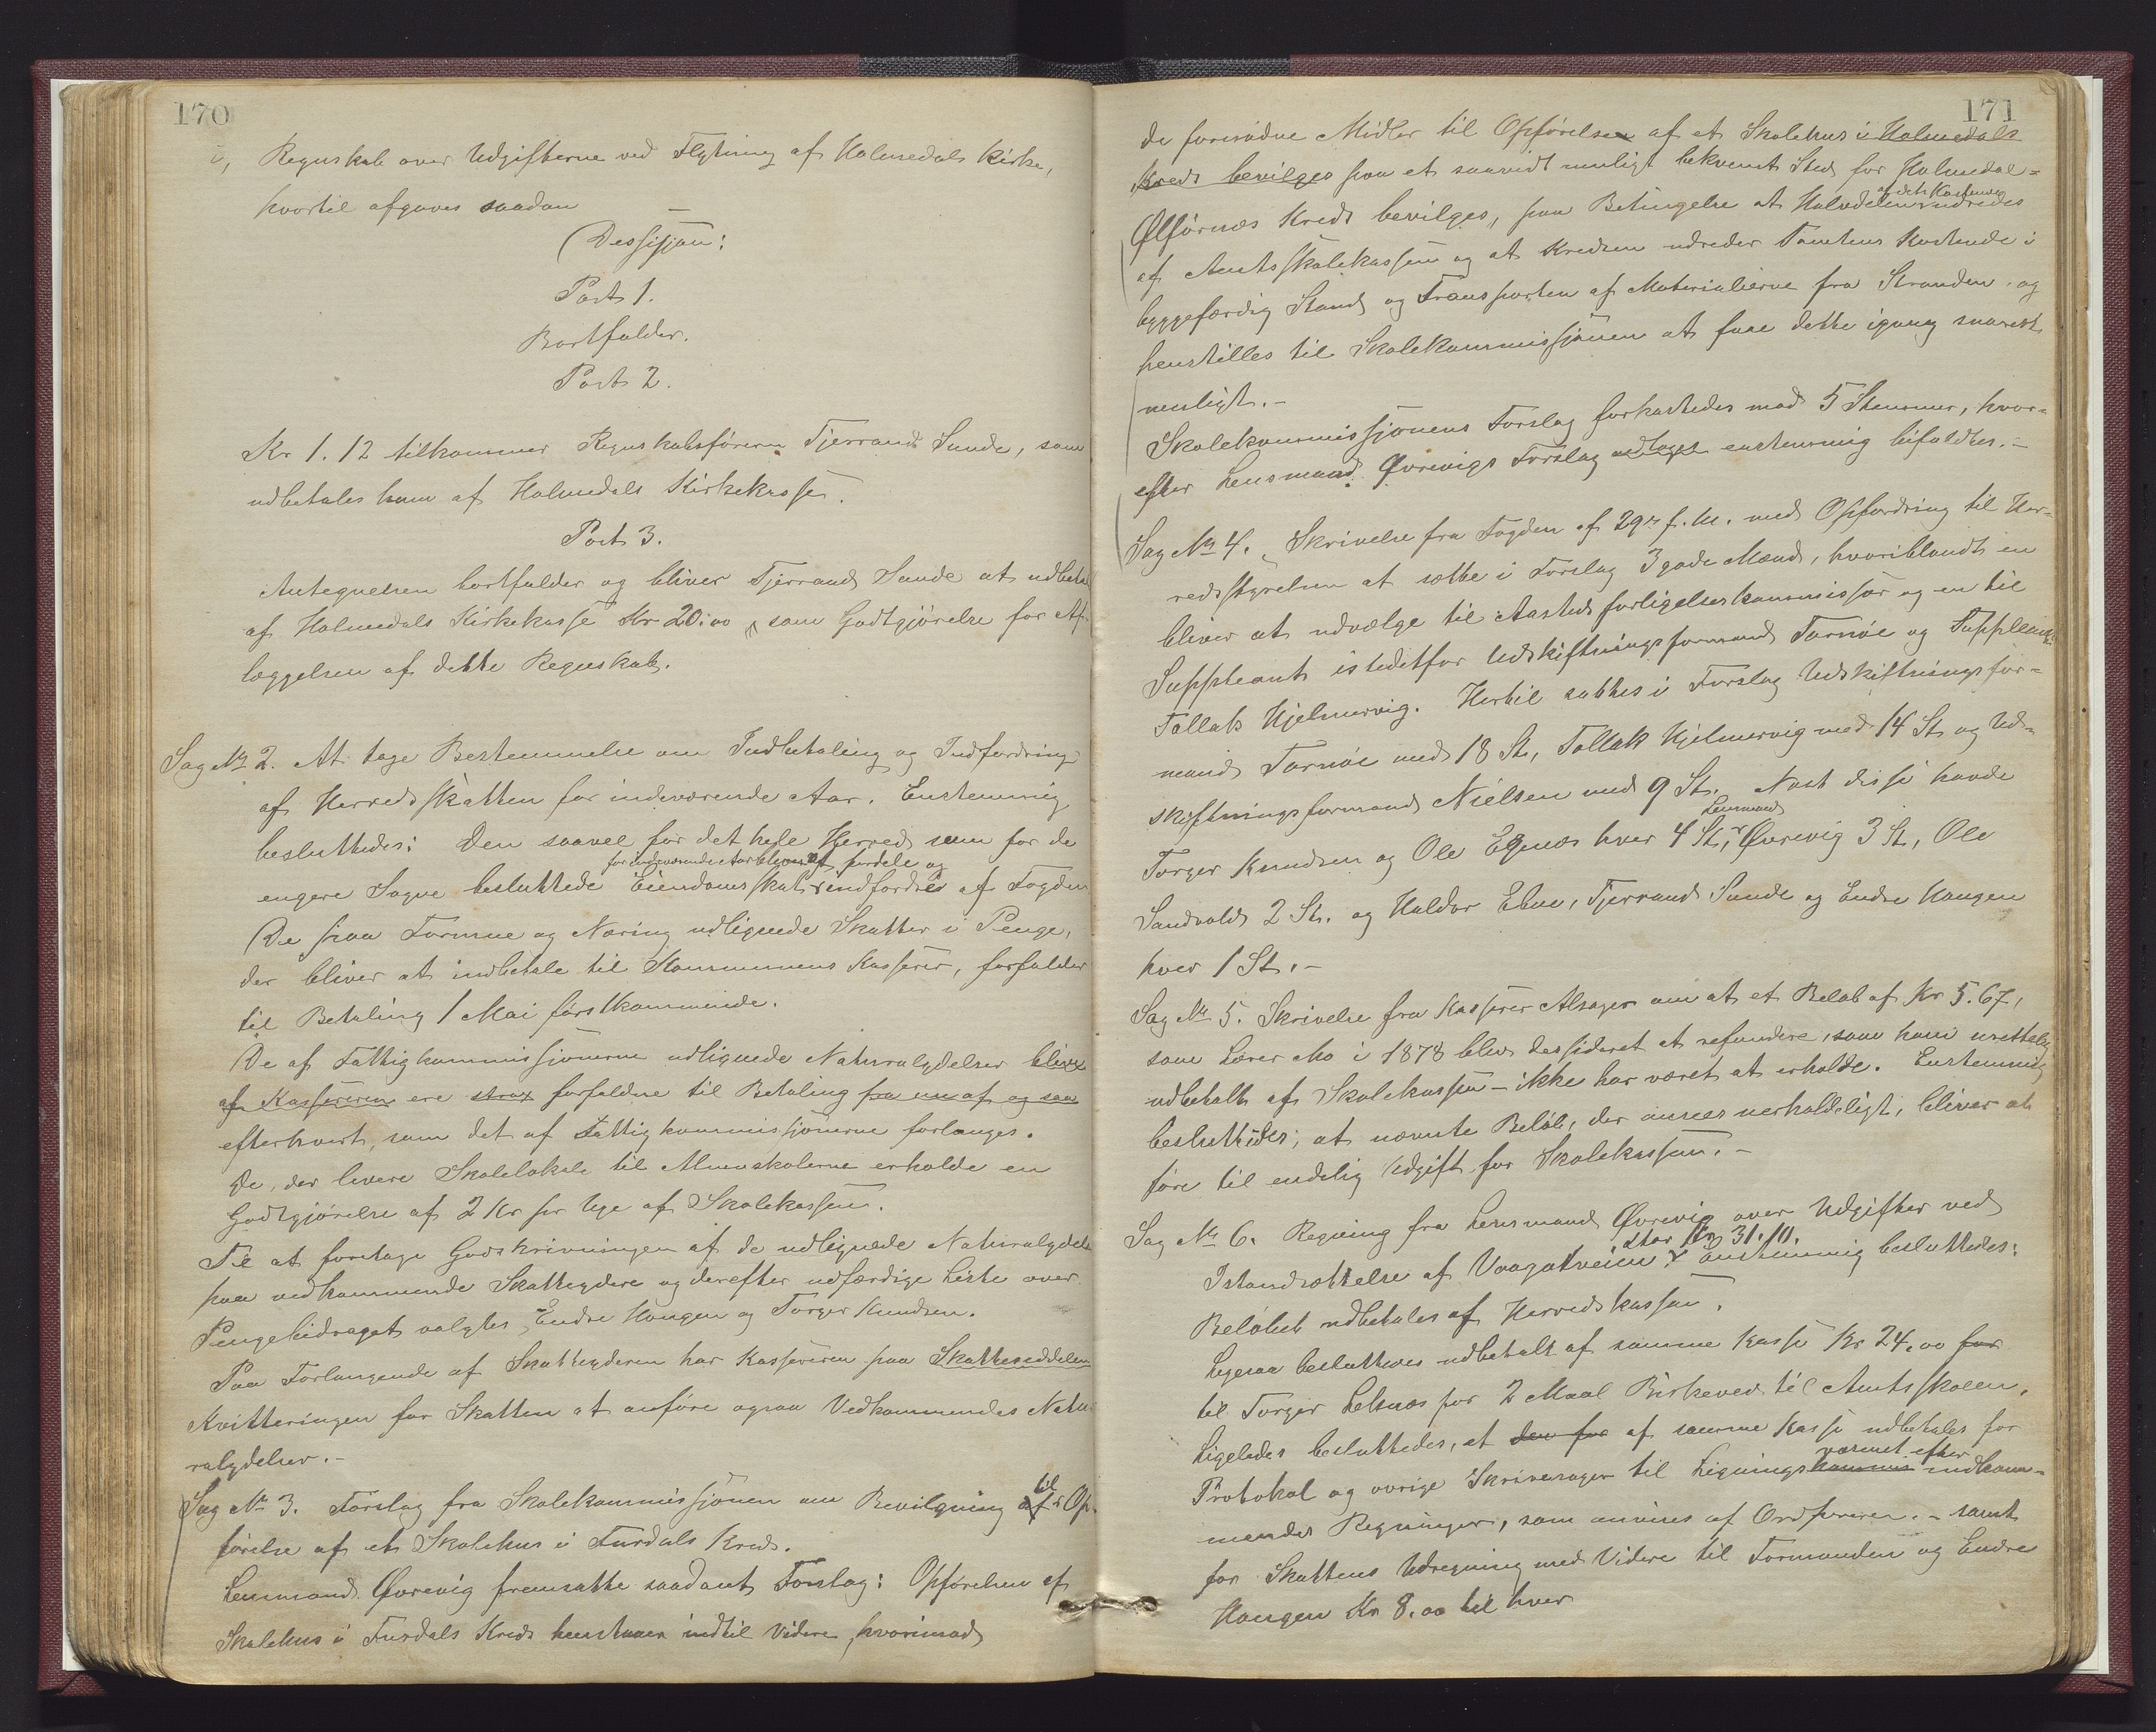 170
i, Regnskab over Udgifterne ved Flytning af Holmedals Kirke,
hvortil afgaves saadan
Dessisjon:
Post 1.
Bortfalder.
Post 2.
Kr 1.12 tilkommer Regnskabsføreren Tjerrand Sunde, som
udbetales ham af Holmedals Kirkekasse.
Post 3.
Antegnelsen bortfalder og bliver Tjerrand Sunde at udbetale
af Holmedals Kirkekasse Kr 20.00 som Godtgjörelse for Af-
læggelsen af dette Regnskab.
Sag No 2. At tage Bestemmelse om Indbetaling og Indfordring
af Herredsskatten for indeværende Aar. Enstemmig
besluttedes: Den saavel for det hele Herred som for de
for indeværende Aar bliver at fordele og
engere Sogne besluttede Eiendomsskat indfordres af Fogden
De paa Formue og Næring udlignede Skatter i Penge,
der bliver at indbetale til Kommunens Kasserer, forfalder
til Betaling 1 Mai førstkommende.
De af Fattigkommissjonerne udlignede Naturalydelser bliver
af Kassereren ere strax forfaldne til Betaling fra nu af og saa
efterhvert, som det af Fattigkommissjonerne forlanges.
De, der levere Skolelokale til Almueskolerne erholde en
Godtgjörelse af 2 Kr pr Uge af Skolekassen.
Til at foretage Godskrivningen af de udlignede Naturalydelser
paa vedkommende Skatteydere og derefter udfærdige Liste over
Pengebidraget valgtes Endre Haugen og Torger Knudsen.
Paa Forlangende af Skatteyderen har Kassereren paa Skatteseddelen
Kvitteringen for Skatten at anføre ogsaa Vedkommendes Natu-
ralydelser.-
Sag No 3. Forslag fra Skolekommissjonen om Bevilgning af til Op-
førelse af et Skolehus i Fusdals Kreds.
Lensmand Øvrevig fremsatte saadant Forslag: Opførelsen af
Skolehus i Fusdals Kreds henstaaer indtil Videre, hvorimod
171
de fornødne Midler til Opførelsen af et Skolehus i Holmedals
Kreds bevilges paa et saavidt muligt bekvemt Sted for Holmedal-
Ølførnæs Kreds bevilges, paa Betingelse at Halvdelen af dets Kostende udredes
af Amtsskolekassen og at Kredsen udreder Tomtens Kostende i
byggefærdig Stand og Transporten af Materialierne fra Stranden og
henstilles til Skolekommissjonen at faae dette igang snarest
muligt.-
Skolekommissjonens Forslag forkastedes mod 5 Stemmer, hvor-
efter Lensmand Øvrevigs Forslag enstemmig bifaldtes.-
Sag No 4. Skrivelse fra Fogden af 29de f. M. med Opfordring til Her-
redsstyrelsen at sætte i Forslag 3 gode Mænd, hvoriblandt en
bliver at udvælge til Aastedsforligelseskommissær og en til
Suppleant istedetfor Udskiftningsformand Tornöe og Suppleant
Tollak Hjelmervig. Hertil sattes i Forslag Udskiftningsfor-
mand Tornöe med 18 St., Tollak Hjelmervig med 14 St. og Ud-
skiftningsformand Nielsen med 9 St. Næst disse havde
Torger Knudsen og Ole Egenæs hver 4 St., Lensmand Øvrevig 3 St, Ole
Sandvold 2 St. og Haldor Ebne, Tjerrand Sunde og Endre Haugen
hver 1 St.-
Sag No 5. Skrivelse fra Kasserer Alsager om at et Beløb af Kr 5.67,
som Lærer Mo i 1878 blev dessideret at refundere, som ham urettelig
udbetalt af Skolekassen - ikke har været at erholde. Enstemmig
besluttedes, at nævnte Beløb, der ansees uerholdeligt, bliver at
føre til endelig Udgift for Skolekassen.-
Sag No 6. Regning fra Lensmand Øvrevig over Udgifter ved
Istandsættelse af Vaagatveien stor Kr 31.10. Enstemmig besluttedes:
Beløbet udbetales af Herredskassen.
Ligesaa besluttedes udbetalt af samme Kasse Kr 24.00 for
til Torger Lebnæs for 2 Maal Birkeved til Amtsskolen.
Ligeledes besluttedes, at den for af samme Kasse udbetales for
Protokol og øvrige Skrivesager til Ligningskommis væsenet efter indkom-
mende Regninger, som anvises af Ordføreren.- samt
for Skattens Udregning med Videre til Formanden og Endre
Haugen Kr 8.00 til hver